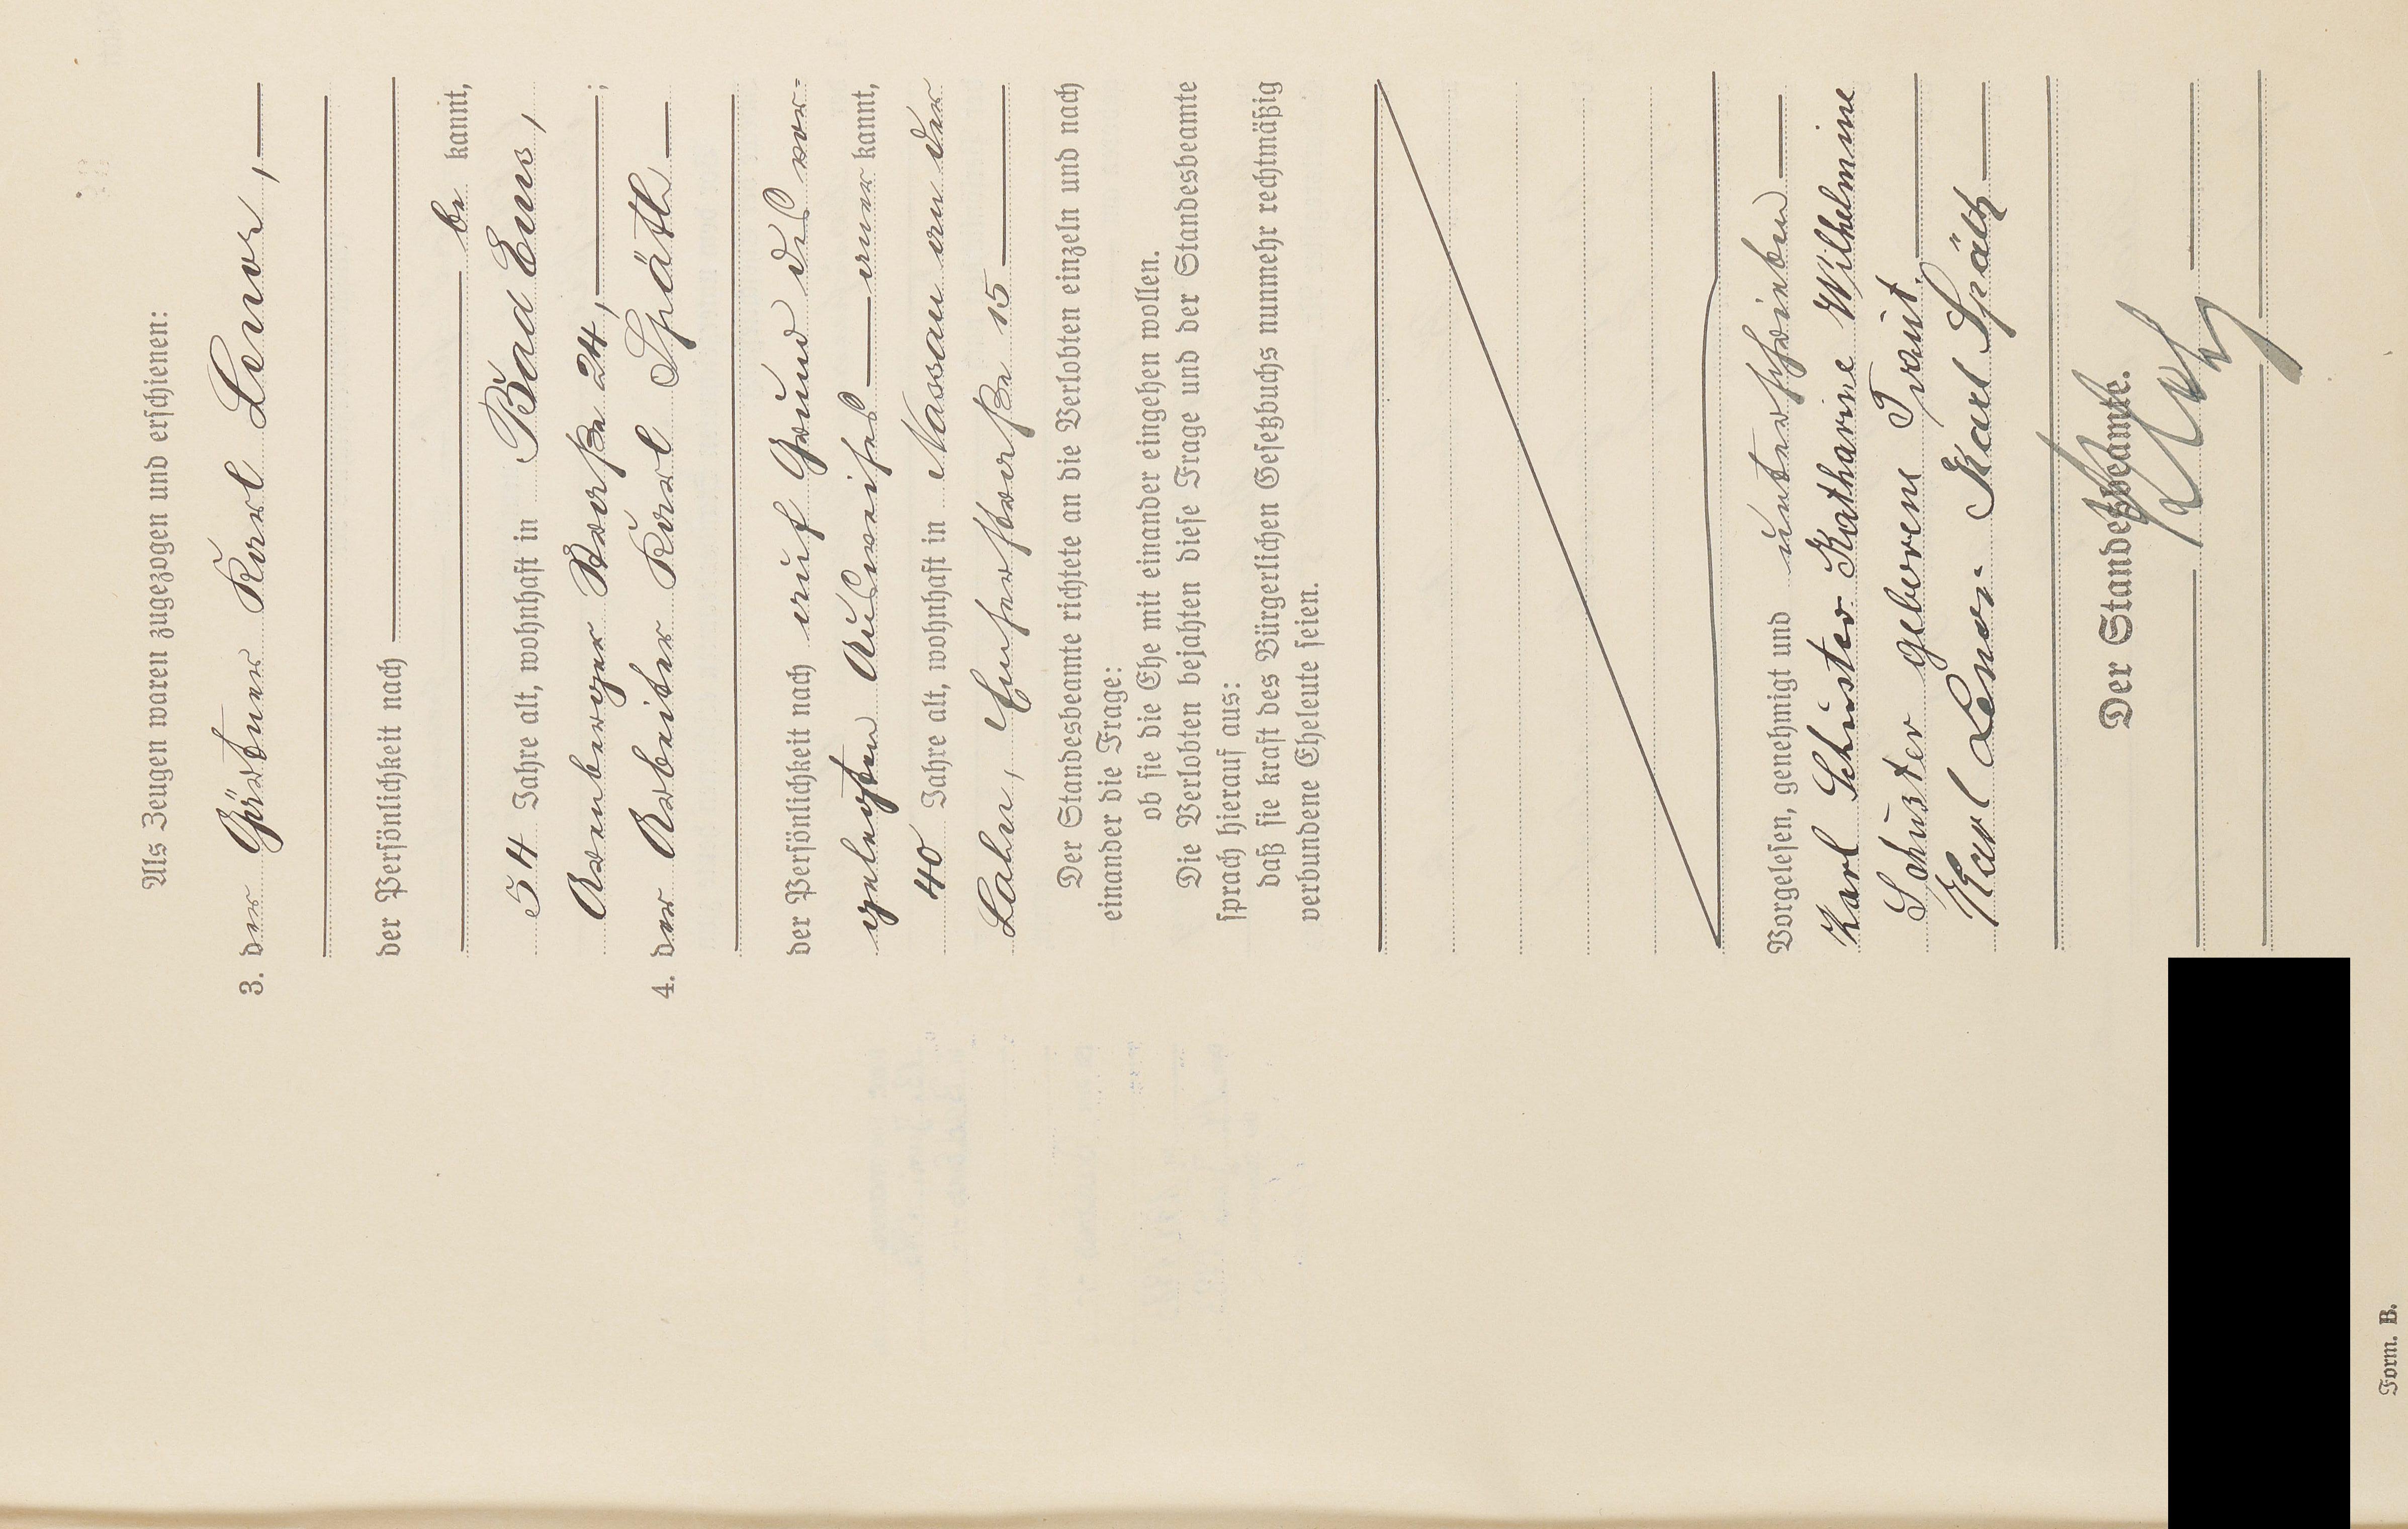 Als Zeugen waren zugezogen und erschienen:
3. der Gärtner Karl Lenor,
der Persönlichkeit nach
be kannt,
54 Jahre alt, wohnhaft in Bad Ems,
Arenberger Straße 24, ;
4. der Arbeiter Karl Späth
der Persönlichkeit nach auf Grund des vor-
gelegten Ausweises aner kannt,
40 Jahre alt, wohnhaft in Nassau an der
Lahn, Emserstraße 15
Der Standesbeamte richtete an die Verlobten einzeln und nach
einander die Frage:
ob sie die Ehe mit einander eingehen wollen.
Die Verlobten bejahten diese Frage und der Standesbeamte
sprach hierauf aus:
daß sie kraft des Bürgerlichen Gesetzbuchs nunmehr rechtmäßig
verbundene Eheleute seien.
Vorgelesen, genehmigt und unterschrieben
Karl Schuster Katharine Wilhelmine
Schuster geborene Traut.
Karl Lenor. Karl Späth
Der Standesbeamte.
Form. B.